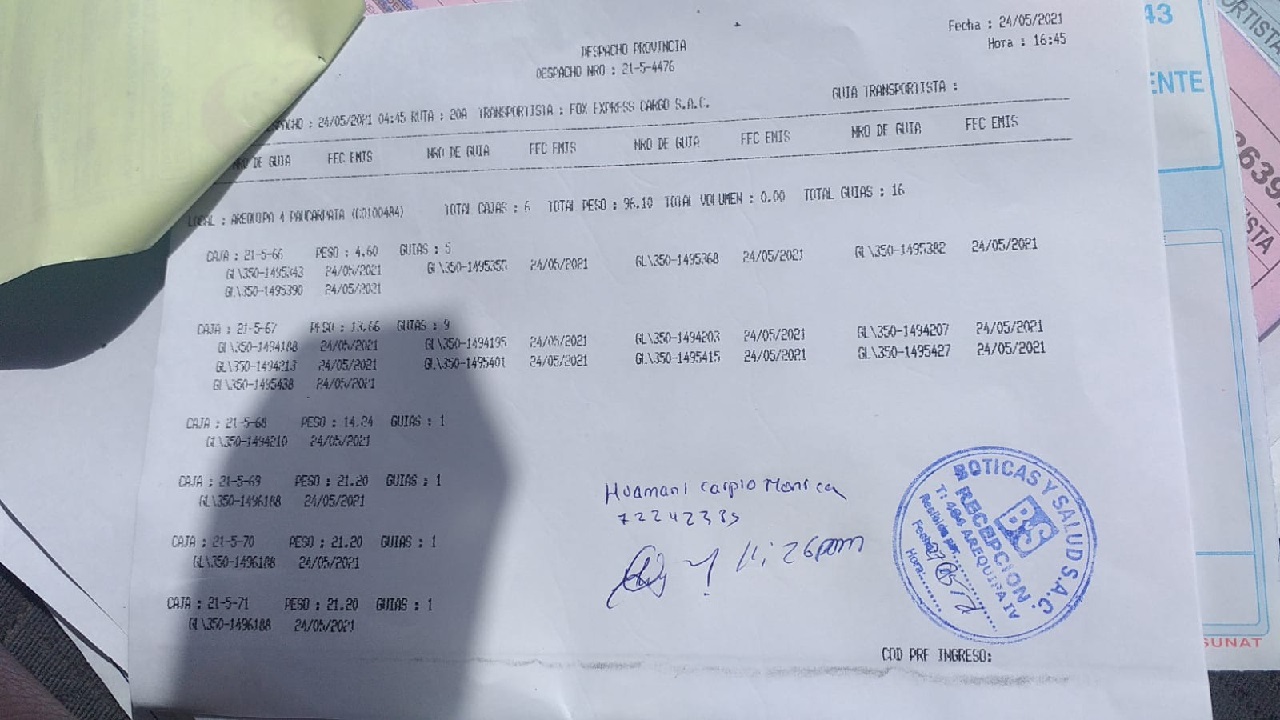 Fecha : 24/05/2021
Hora : 16:45
DESPACHO PROVINCIA
DESPACHO NRO : 21-5-4476
: 24/05/2021 04:45 RUTA : 20A TRANSPORTISTA : FOX EXPRESS CARGO S.A.C. GUIA TRANSPORTISTA :
NRO DE GUIA FEC EMIS NRO DE GUIA FEC EMIS NRO DE GUIA FEC EMIS NRO DE GUIA FEC EMIS
LOCAL : AREQUIPA 4 PAUCARPATA TOTAL CAJAS : 6 TOTAL PESO : 96.10 TOTAL VOLUMEN : 0.00 TOTAL GUIAS : 16
CAJA : 21-5-66 PESO : 4.60 GUIAS : 5
GL\350-1495343 24/05/2021 GL\350-1495355 24/05/2021 GL\350-1495368 24/05/2021 GL\350-1495382 24/05/2021
GL\350-1495390 24/05/2021
CAJA : 21-5-67 PESO : 13.66 GUIAS : 9
GL\350-1494188 24/05/2021 GL\350-1494195 24/05/2021 GL\350-1494203 24/05/2021 GL\350-1494207 24/05/2021
GL\350-1494213 24/05/2021 GL\350-1495401 24/05/2021 GL\350-1495415 24/05/2021 GL\350-1495427 24/05/2021
GL\350-1495438 24/05/2021
CAJA : 21-5-68 PESO : 14.24 GUIAS : 1
GL\350-1494210 24/05/2021
CAJA : 21-5-69 PESO : 21.20 GUIAS : 1
GL\350-1496188 24/05/2021
CAJA : 21-5-70 PESO : 21.20 GUIAS : 1
GL\350-1496188 24/05/2021
CAJA : 21-5-71 PESO : 21.20 GUIAS : 1
GL\350-1496188 24/05/2021
Huamani Carpio Monica
72242335
1:26pm
BOTICAS Y SALUD S.A.C.
BS
RECEPCION
T: 484 AREQUIPA IV
Recibido por:
Fecha:
Hora:
COD PRF INGRESO:
43
ENTE
SUNAT